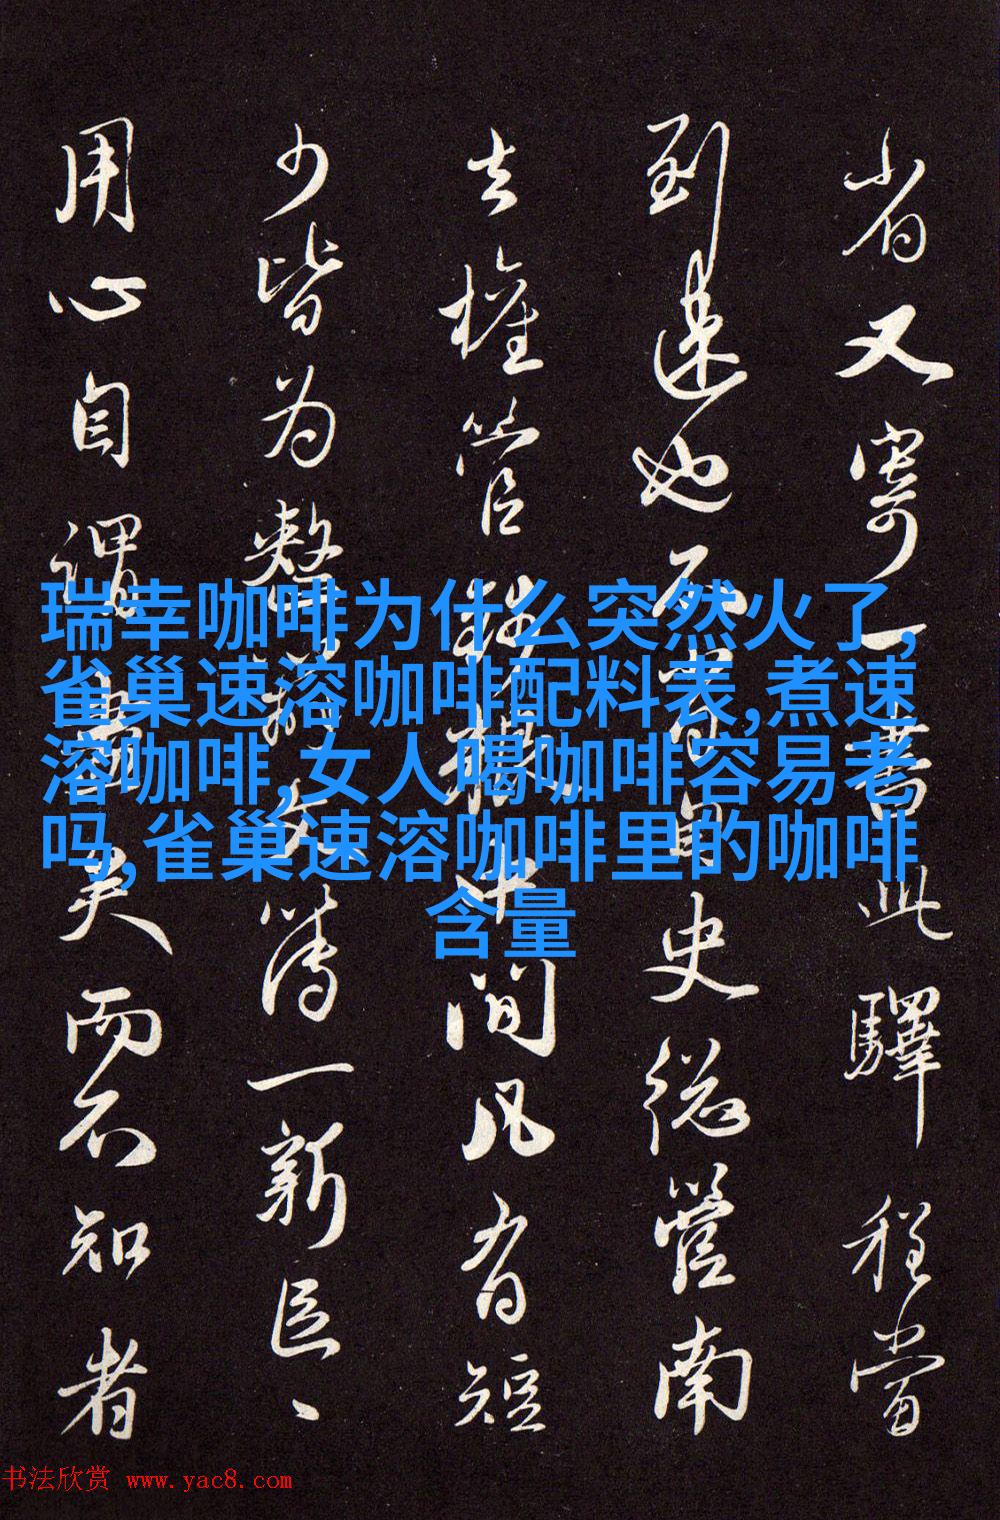 省又寄一書此驛程當
到速也不書自史總管南
去權管中間凡有短
少皆为整薄一新臣、
用心自謂失而不知者
瑞幸咖啡为什么突然火了,
雀巢速溶咖啡配料表,煮速
溶咖啡,女人喝咖啡容易老
吗,雀巢速溶咖啡里的咖啡
含量
书法欣赏 www.yac8.com